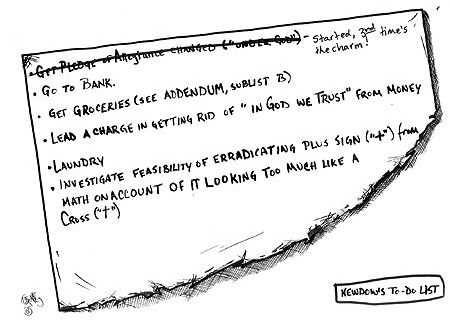 • Get Pledge of Allegiance changed ("under God") - Started, 2nd time's
the charm!
• Go to Bank.
• Get Groceries (see Addendum, sublist B)
• Lead a charge in getting rid of "In God We Trust" from money
• Laundry
• Investigate feasibility of erradicating plus sign ("+") from
math on account of it looking too much like a
Cross ("†")
Newdow's To-Do List